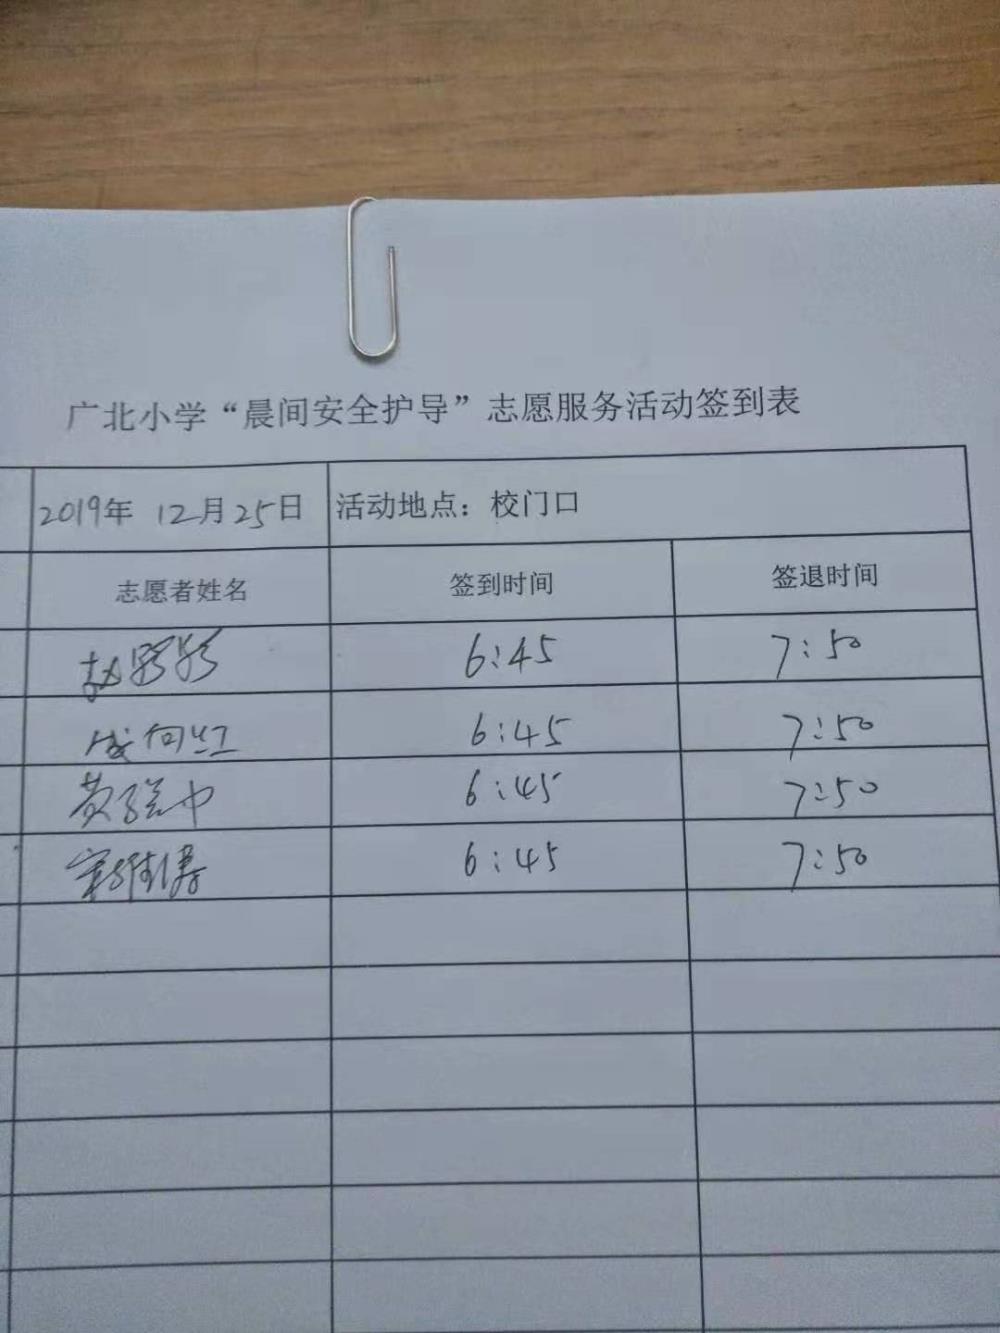 广北小学“晨间安全护导”志愿服务活动签到表
2019年 12月25日 活动地点：校门口
志愿者姓名 签到时间 签退时间
赵 6:45 7:50
成向红 6:45 7:50
黄 中 6:45 7:50
6:45 7:50